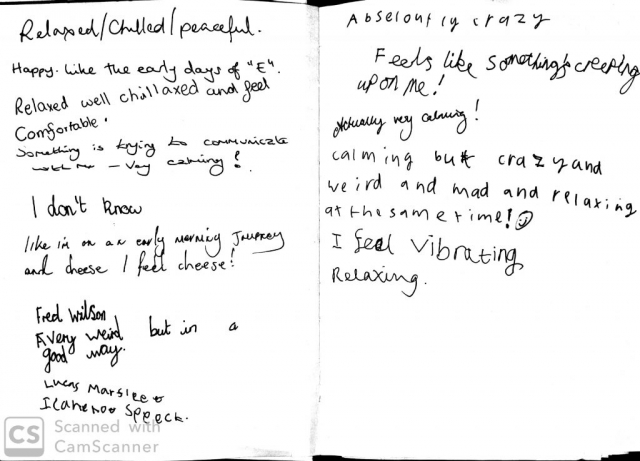 Relaxed/Chilled/peaceful.
Happy. Like the early days of "E".
Relaxed well chillaxed and feel
Comfortable.
Something is trying to communicate
with me – Very calming!
I don't know
like im on an early morning Journey
and cheese I feel cheese!
Fred Wilson
Every weird but in a
good way.
Lucas
Speeck.
Abseloutly crazy
Feels like somethings creeping
upon me!
Actually very calming!
calming but crazy and
weird and mad and relaxing
at the same time!
I feel Vibrating
Relaxing.
CS Scanned with
CamScanner